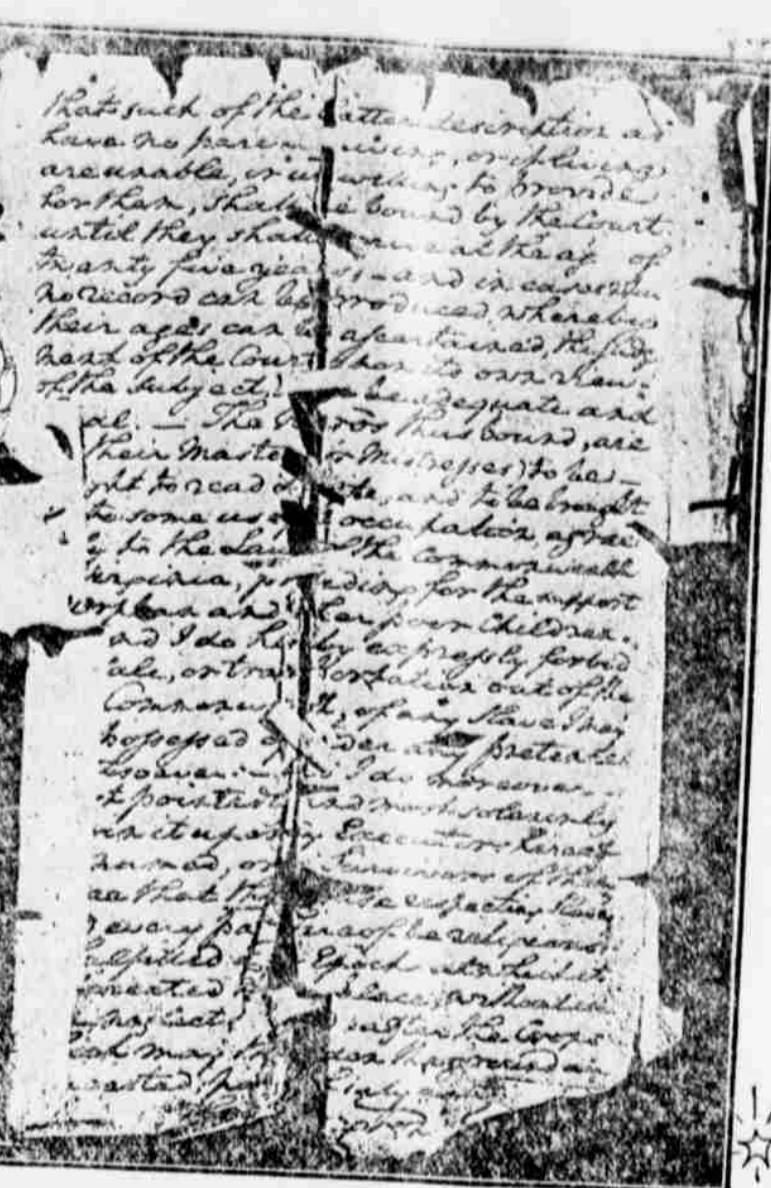 that such of the latter description as
have no parents living, or if living
are unable, or unwilling to provide
for them, shall be bound by the Court
until they shall arrive at the age of
twenty five years; – and in cases when
no record can be produced, whereby
their ages can be ascertained, the judg
ment of the Court upon its own view
of the subject, be adequate and
al. – The Negros thus bound, are
their Masters or Mistresses) to be
ght to read & write, and to be brought
to some useful occupation, agree
y to the Laws of the Commonwealth
irginia, providing for the support
orphan and other poor Children.
nd I do hereby expressly forbid
ale, or transportation out of the
Commonwealth, of any Slave I may
possessed of, under any pretence
tsoever. – I do moreover
t pointedly and most solemnly
in it upon my Executors hereaf
named, or Survivors of them
ee that this clause respecting Slaves
every part thereof be religiously
ulfilled at the Epoch at which it
place; without
neglect, after the Crops
may then be on the ground are
ested,